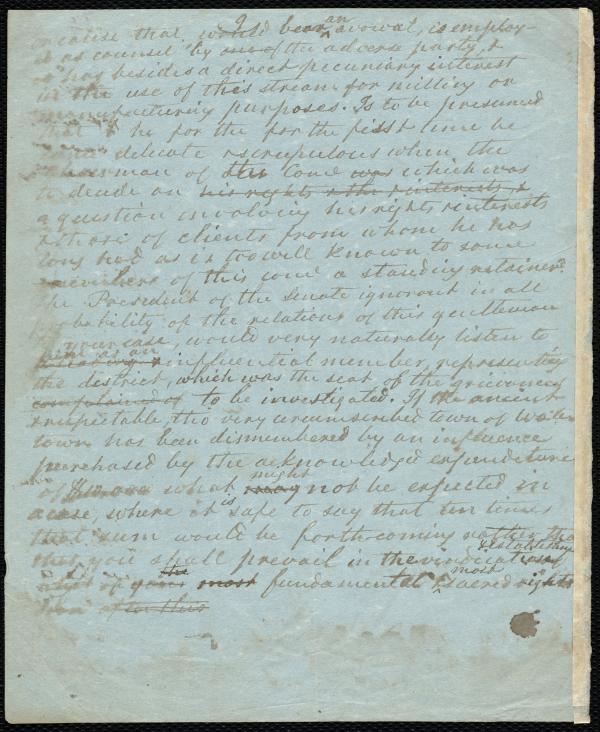 2
cause that would bear an avowal, is employ-
ed as counsel by one of the adverse party, &
has besides a direct pecuniary interest
in the use of this stream for milling or
manufacturing purposes. Is to be presumed
that he for the for the first time be
delicate & scrupulous when the
chairman of the Com'e was which was
to decide on his rights & the interests &
a question involving his rights & interests
& those of clients from whom he has
long had as is too well known to some
members of this com'e a standing retainer.
The President of the Senate ignorant in all
probability of the relations of this gentleman
your case, would very naturally listen to
an influential member, representing
the district, which was the seat of the grievances
complained of to be investigated. If the ancient
& respectable, tho very circumscribed town of Water
town has been dismembered by an influence
purchased by the acknowledged expenditure
of what might may not be expected in
a case, where it is safe to say that ten times
that sum would be forthcoming rather than
that you shall prevail in the vindication
of your the most fundamental & most sacred rights